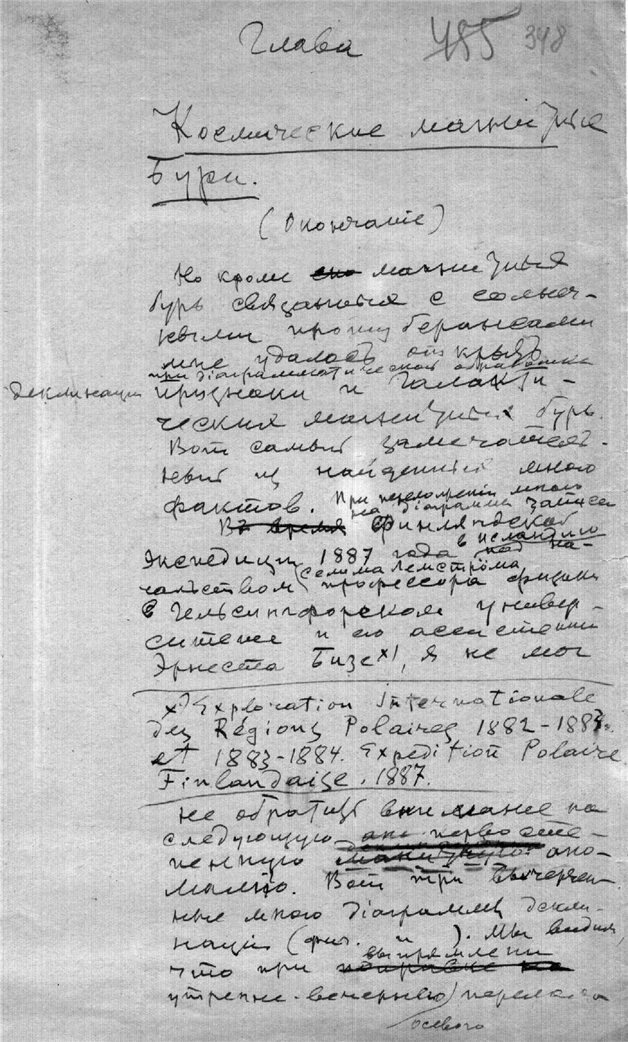 Глава 485 348
Космические магнитные
Бури.
(Окончанiе)
Но кроме магнитныя
бурь связанныя с солнеч-
ными протуберансами
мне удалось открыть
при дiаграмматической обработке
деклинацiи признаки и Галакти-
ческих магнитных бурь.
Вот самый замечатель-
ный из найденных мною
фактов. При переложении мною
на диаграммы записи
Въ время Финляндской
в Исландию
Экспедиции 1887 года под на-
Селима Лемстрёма
чальством профессора физики
в Гельсингфорском универ-
ситете и его ассистента
Эрнеста Бизе x), я не мог
x) Exploration Internationale
des Régions Polaires 1882-1883
et 1883-1884. Expédition Polaire
Finlandaise. 1887.
не обратить внимание на
следующую
пенную ано-
малiю. Вот три вычерчен-
ные мною дiаграммы декли-
нацiи (фиг. и ). Мы видим,
выпрямлении
что при поправке на
утренне-вечернею
осевого